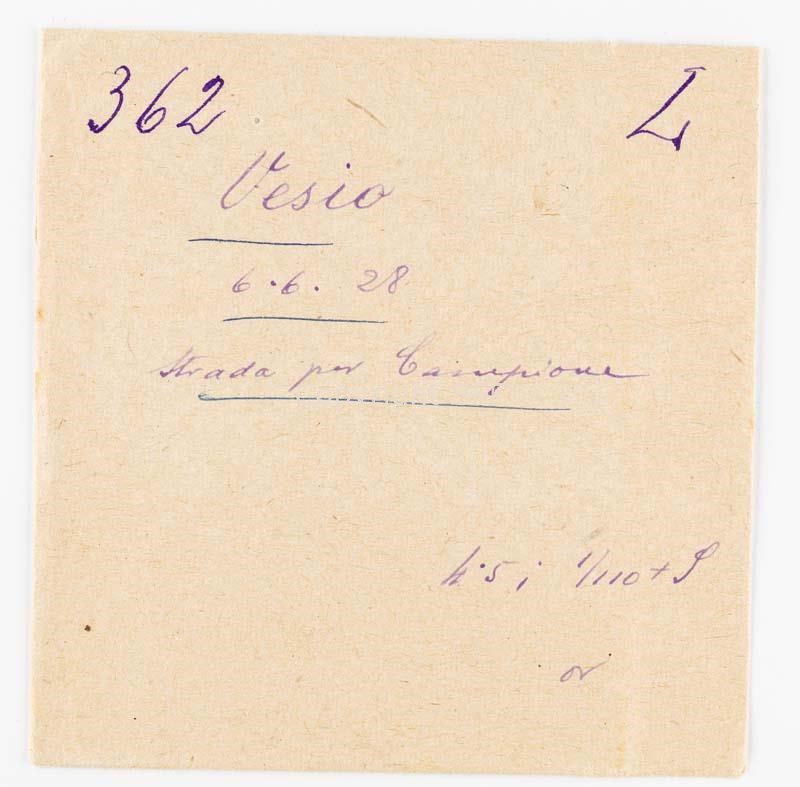 362 L
Vesio
6.6. 28
Strada per Campione
4.5 ; 1/110 + S
or